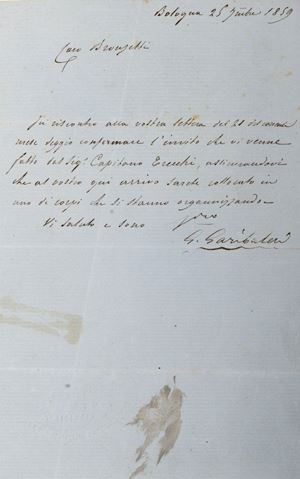 Bologna 25 9mbre 1859
Caro Bronzetti
In riscontro alla vostra lettera del 21 del corrente
mese deggio confermare l'invito che vi venne
fatto dal Sigr. Capitano Cecchi, assicurandovi
che al vostro qui arrivo sarete collocato in
uno di corpi che si stanno organizzando
Vi saluto e sono
G. Garibaldi